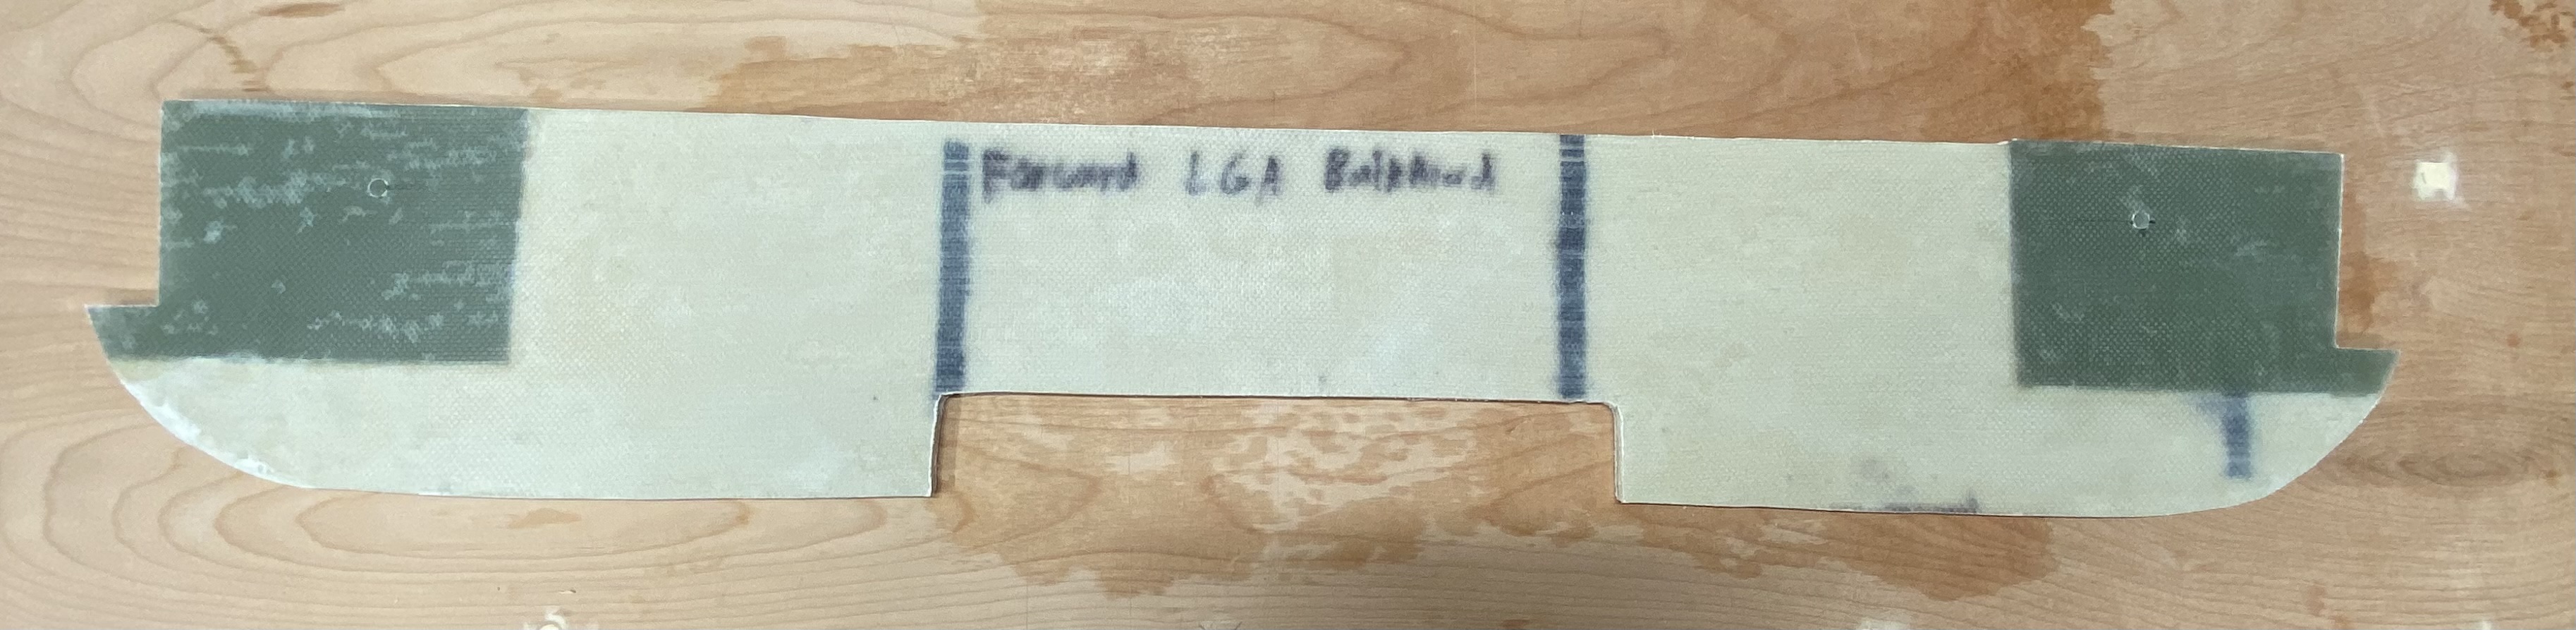 Forward LGA Bulkhead